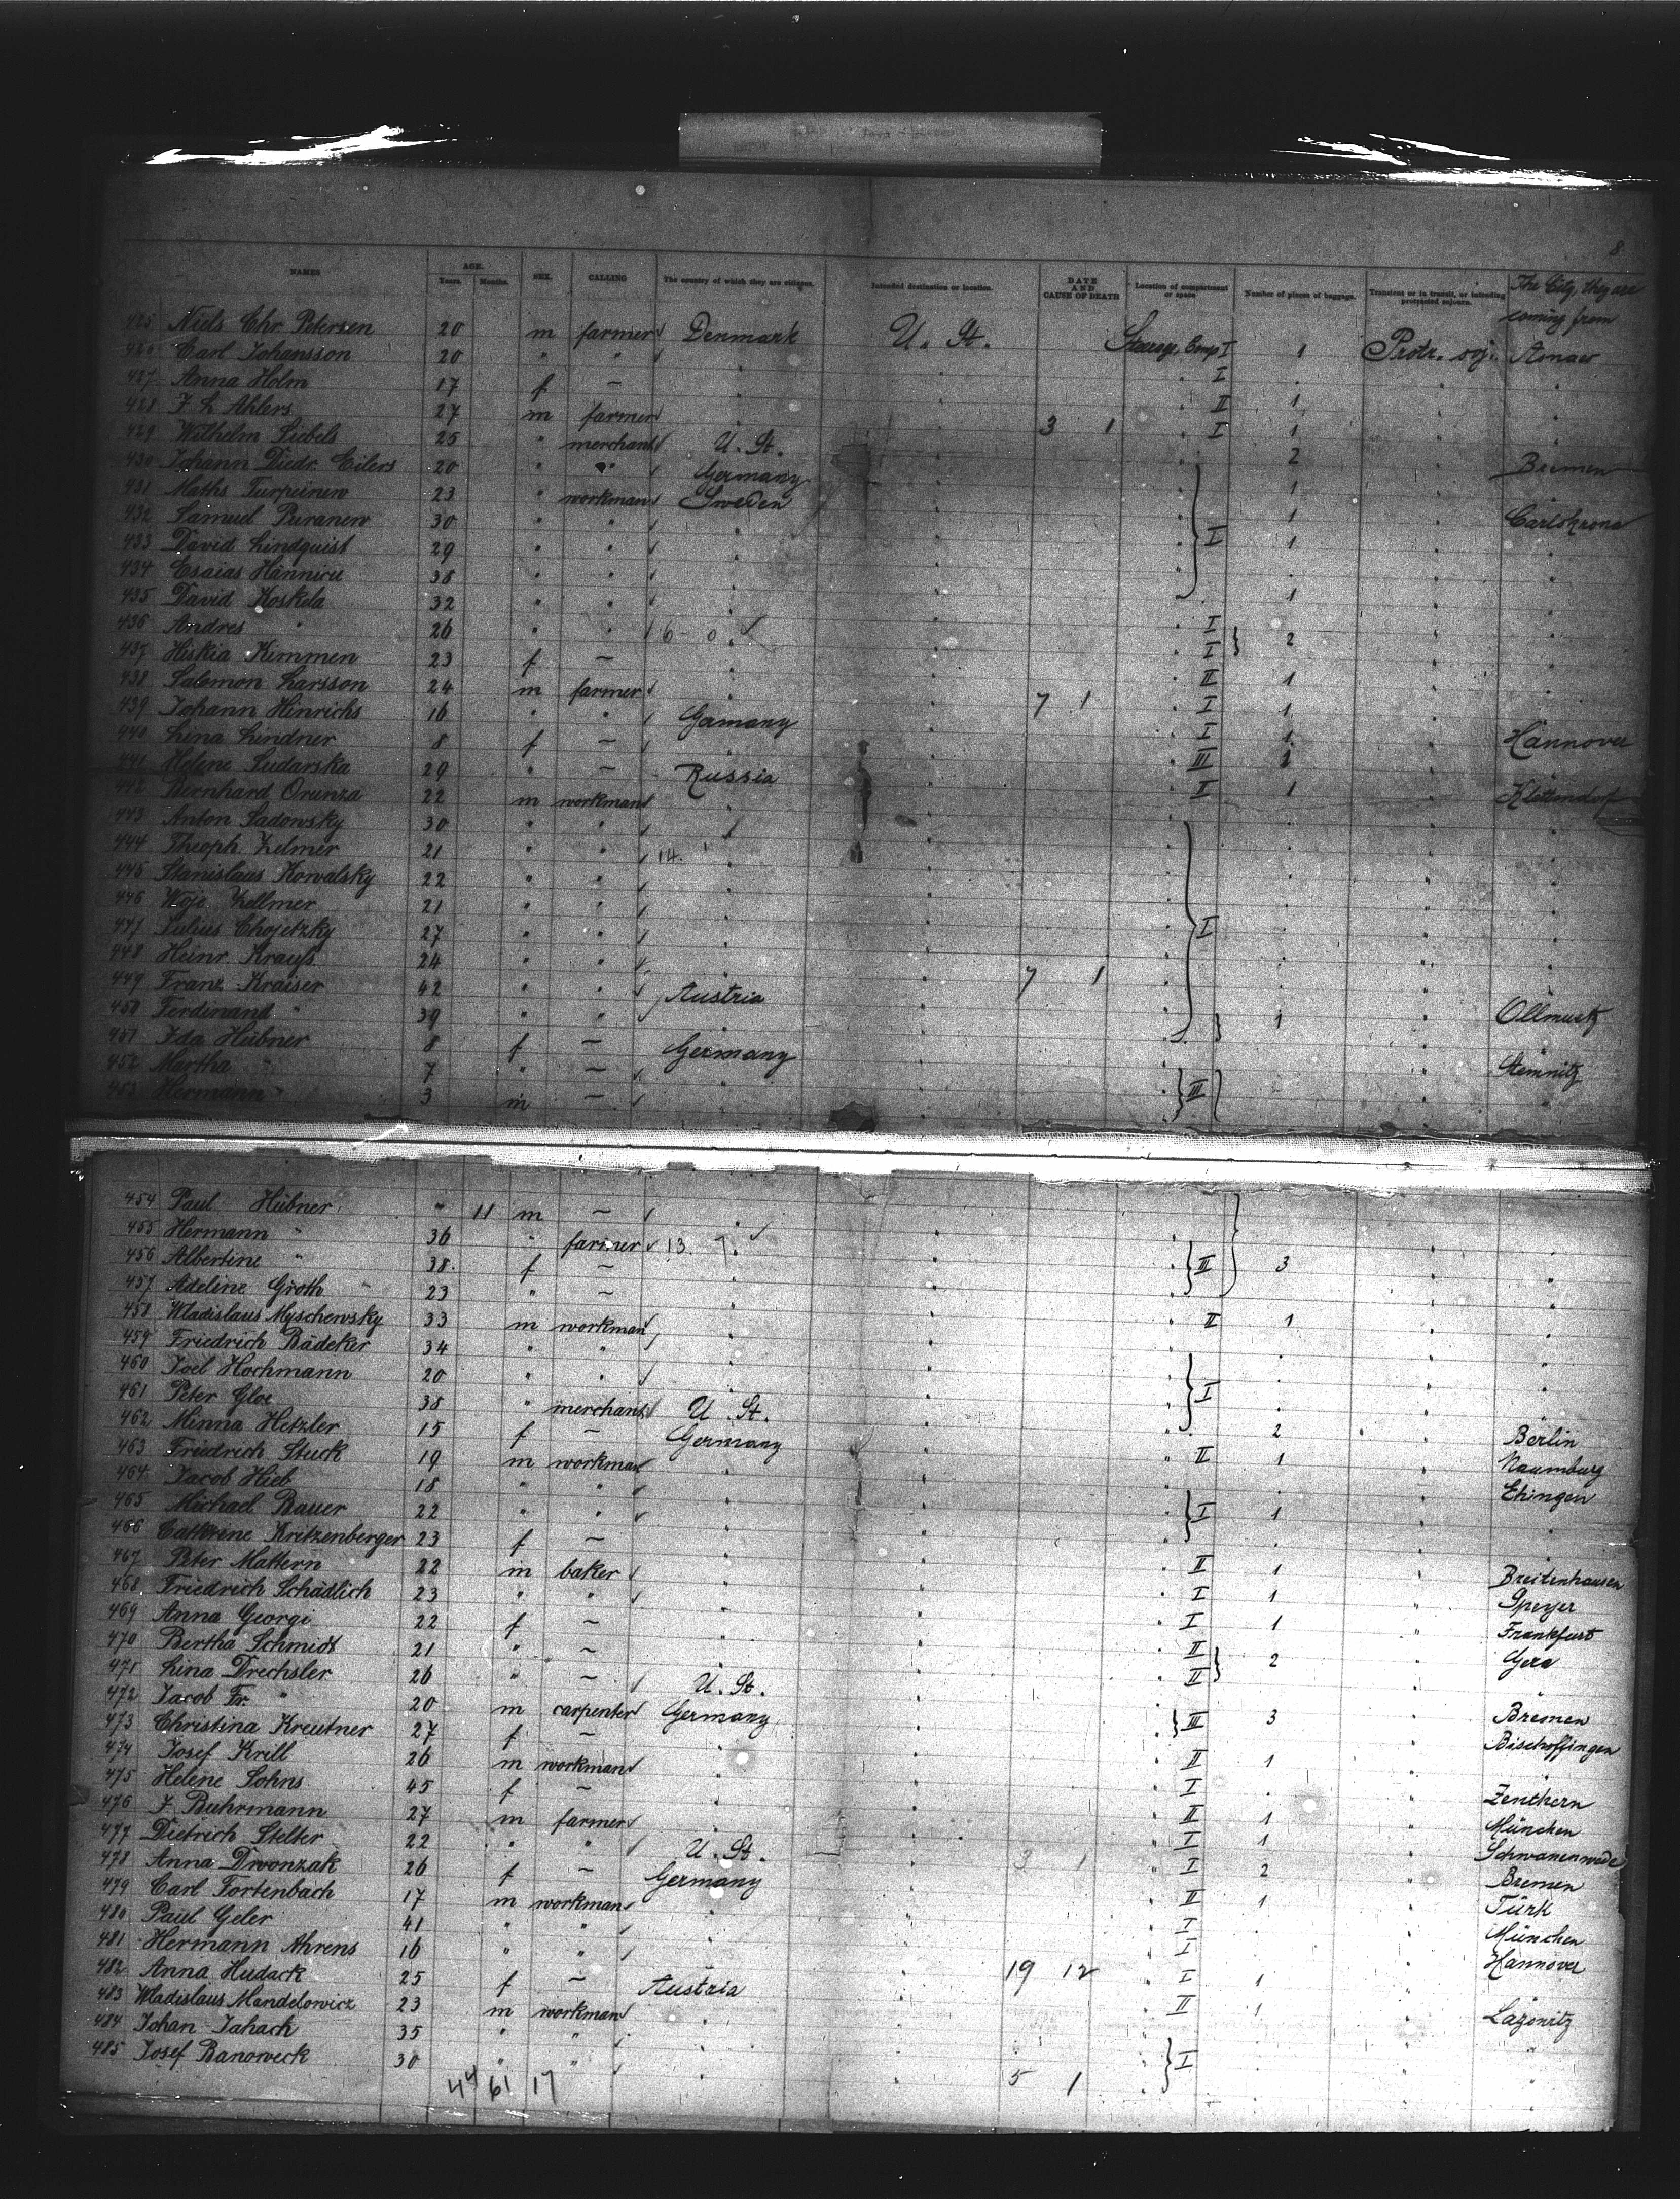 8
NAMES AGE. Years. Months. SEX. CALLING The country of which they are citizens. Intended destination or location. DATE AND CAUSE OF DEATH Location of compartment or space Number of pieces of baggage. Transient or in transit, or intending protracted sojourn. The City, they are coming from
425 Niels Chr. Petersen 20 m farmer Denmark U. St. Steerage, Comp I 1 Protr. soj.
426 Carl Johansson 20 " " " " I " "
427 Anna Holm 17 f — " " II 1 "
428 F. h. Ahlers 27 m farmer " " 3 1 I 1 "
429 Wilhelm Siebels 25 " merchant U. St. " 2 " Bremen
430 Johann Diedr. Eilers 20 " " Germany " 1 "
431 Maths Turpeinen 23 " workman Sweden " 1 " Carlskrona
432 Samuel Puranen 30 " " " " I 1 "
433 David Lindquist 29 " " " " " "
434 Esaias Hännicu 38 " " " " 1 "
435 David Koskela 32 " " " " "
436 Andres " 26 " " 6 - 0 " I 2 "
437 Hiskia Kimmen 23 f — " " I "
438 Salomon Larsson 24 m farmer " " 7 1 II 1 "
439 Johann Hinrichs 16 " " Germany " I 1 "
440 Lina Lindner 8 f — " " I 1 " Hannover
441 Helene Sudarska 29 " — Russia " III 1 "
442 Bernhard Orunza 22 m workman " " I 1 "
443 Anton Sadowsky 30 " " " " "
444 Theoph. Zelmer 21 " " 14. " "
445 Stanislaus Kowalsky 22 " " " " "
446 Woje. Zellmer 21 " " " " "
447 Julius Chojetzky 27 " " " " I "
448 Heinr. Krauss 24 " " " " 7 1 "
449 Franz Kraiser 42 " " Austria " "
450 Ferdinand " 39 " " " " 1 " Ollmutz
451 Ida Hübner 8 f — Germany " "
452 Martha " 7 " — " " III " Steinnitz
453 Hermann " 3 m — " " "
454 Paul Hübner " 11 m — " " "
455 Hermann " 36 " farmer 13. 7. " "
456 Albertine " 38. f — " " II 3 "
457 Adeline Groth 23 " — " " "
458 Wladislaus Myschewsky 33 m workman " " II 1 "
459 Friedrich Bädeker 34 " " " " "
460 Joel Hochmann 20 " " " " I "
461 Peter Gloe 38 " merchant U. St. " "
462 Minna Hetzler 15 f — Germany " 2 " Berlin
463 Friedrich Stuck 19 m workman " " II 1 " Naumburg
464 Jacob Hieb 18 " " " " " Ehingen
465 Michael Bauer 22 " " " " I 1 "
466 Cathrine Kritzenberger 23 f — " " "
467 Peter Mattern 22 m baker " " II 1 " Breitenhausen
468 Friedrich Schädlich 23 " " " " I 1 " Speyer
469 Anna Georgi 22 f — " " I 1 " Frankfurt
470 Bertha Schmidt 21 " — " " II 2 " Gera
471 Lina Drechsler 26 " — U. St. " II "
472 Jacob Fr. " 20 m carpenter Germany " III 3 " Bremen
473 Christina Kreutner 27 f — " " " Bischoffingen
474 Josef Krill 26 m workman " " II 1 "
475 Helene Sohns 45 f — " " I " Zenthern
476 F. Buhrmann 27 m farmer " " II 1 " München
477 Dietrich Stelter 22 " " U. St. " 3 1 I 1 " Schwanenwede
478 Anna Dwonzak 26 f — Germany " I 2 " Bremen
479 Carl Fortenbach 17 m workman " " II 1 " Türk
480 Paul Geler 41 " " " " I " München
481 Hermann Ahrens 16 " " " " 19 12 I " Hannover
482 Anna Hudack 25 f — Austria " I 1 "
483 Wladislaus Mendelowicz 23 m workman " " II 1 " Lazonitz
484 Johan Jahach 35 " " " " I "
485 Josef Banoweck 30 " " " " 5 1 "
44 61 17